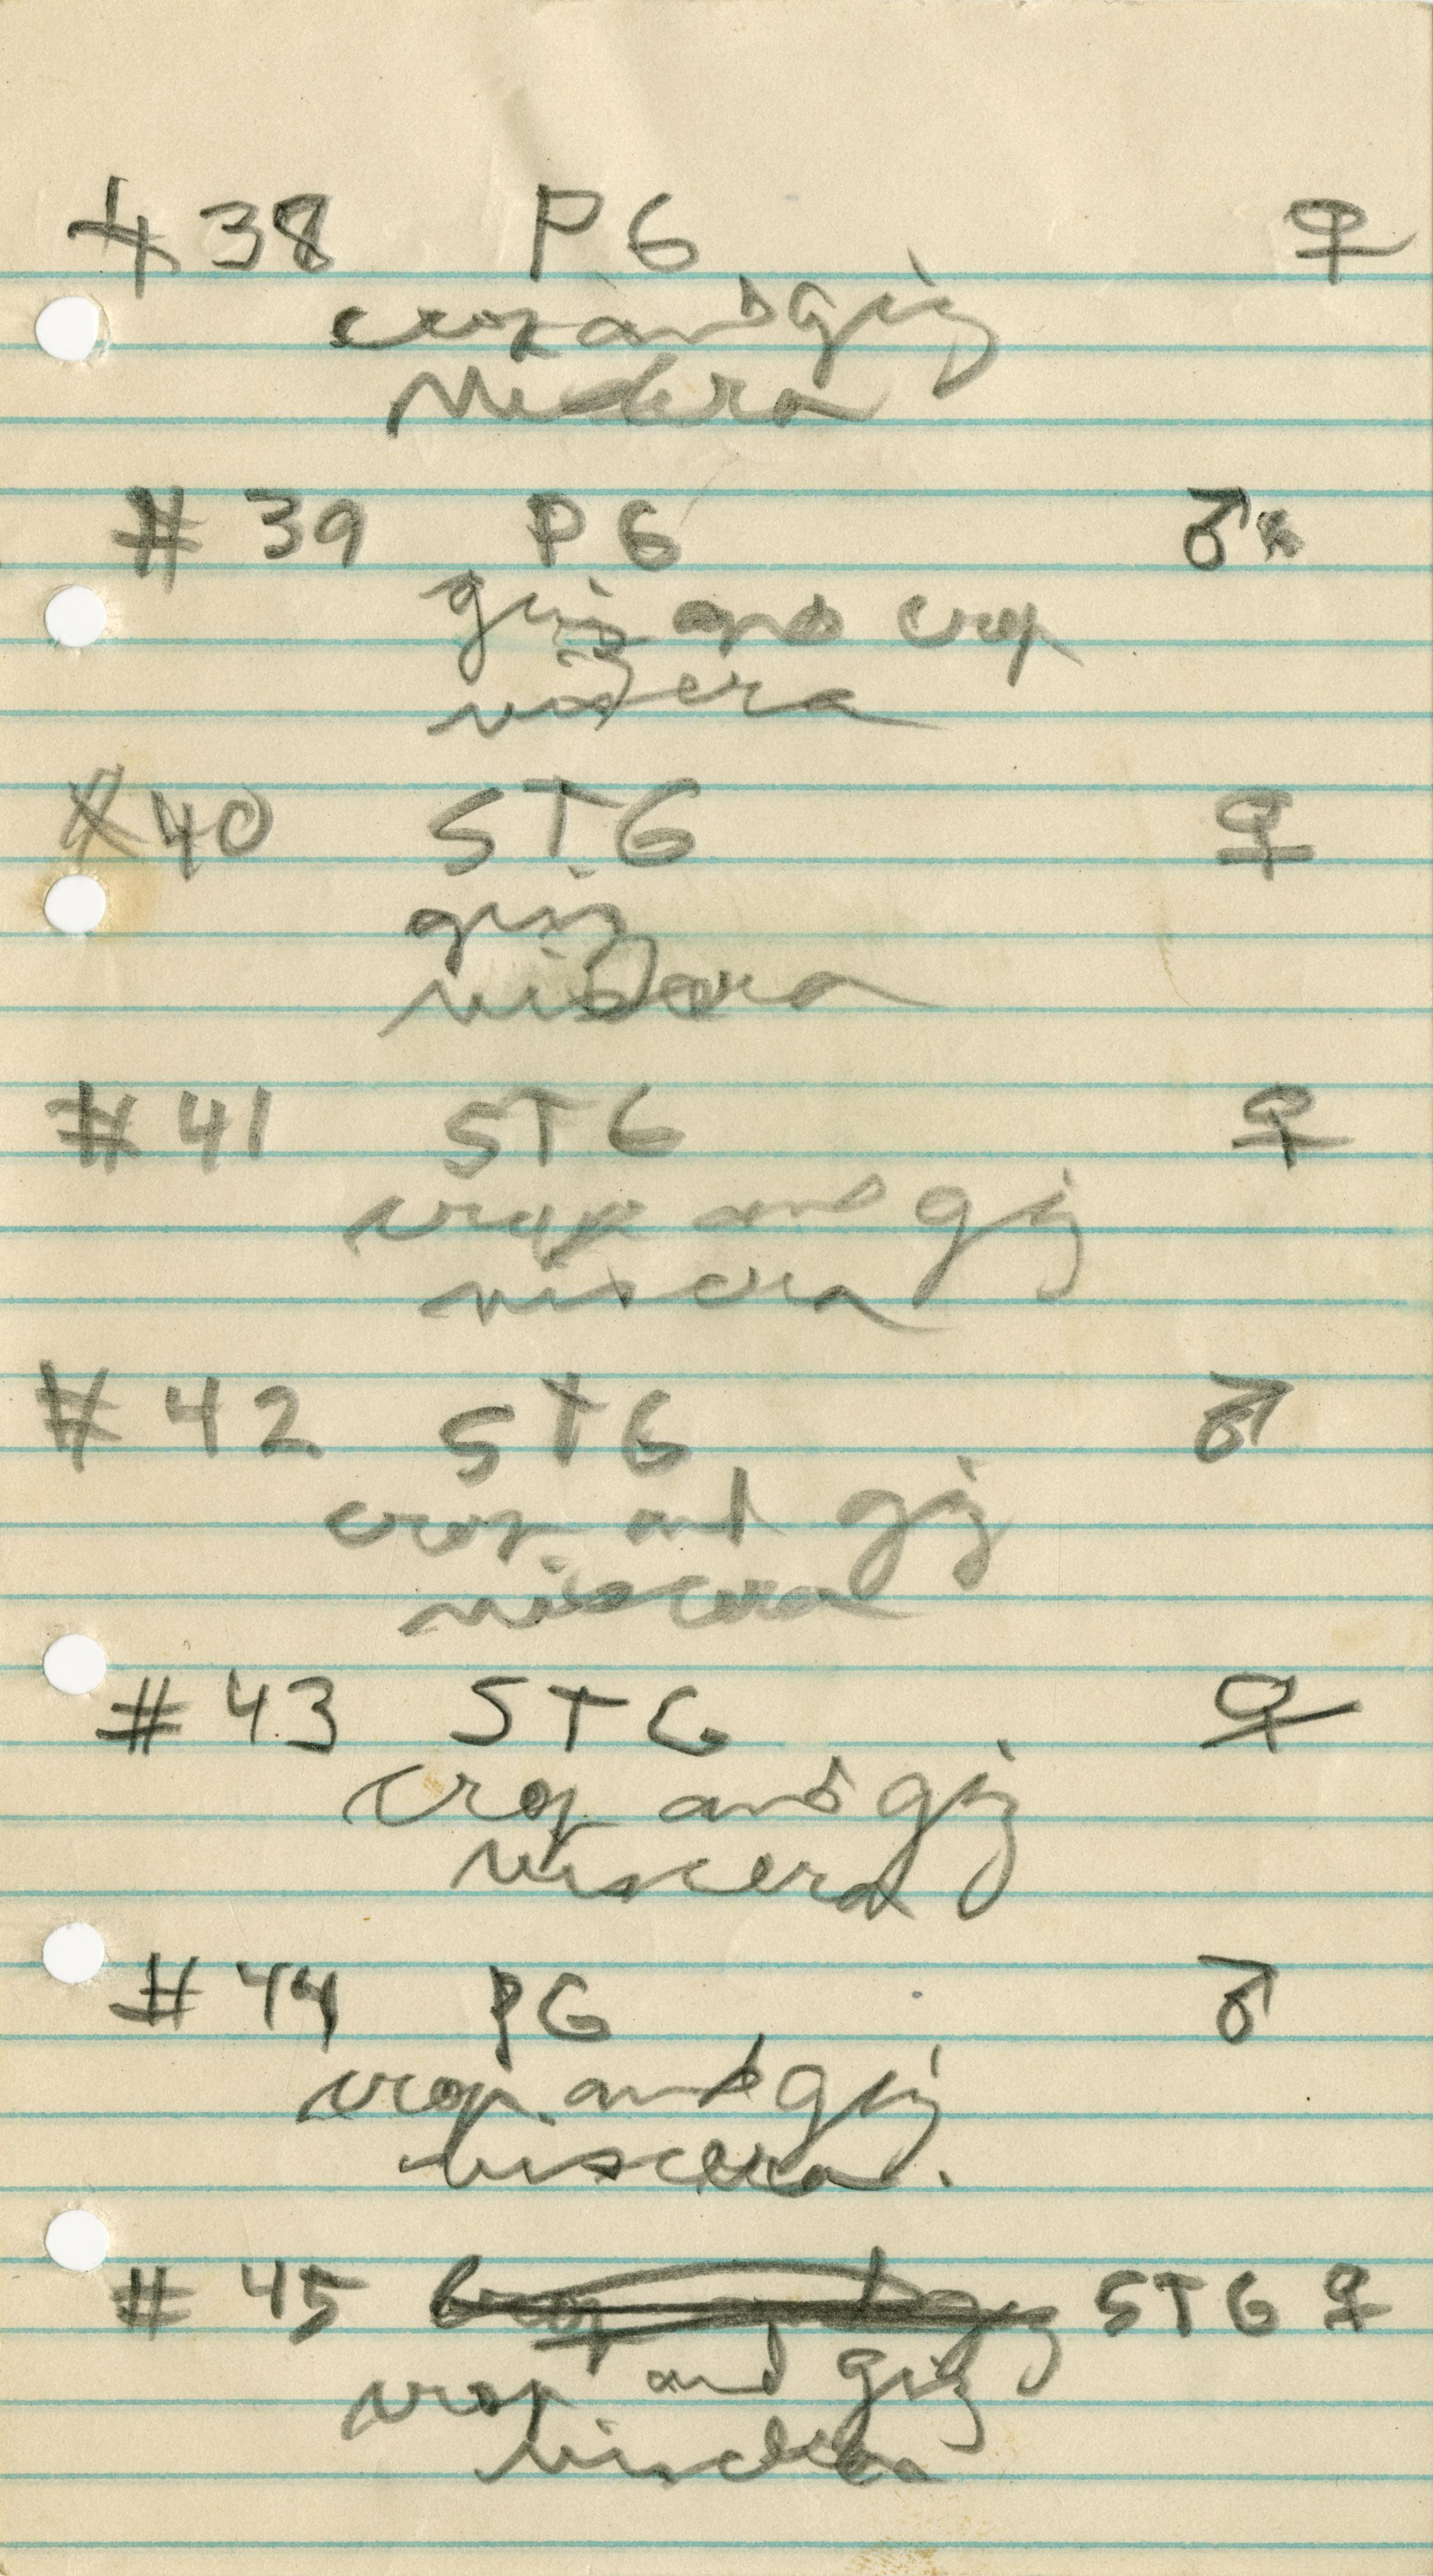 # 38 PG ♀
crop and giz
viscera
# 39 PG ♂
giz and crop
viscera
# 40 STG ♀
giz
viscera
# 41 STG ♀
crop and giz
viscera
# 42 STG ♂
crop and giz
viscera
# 43 STG ♀
crop and giz
viscera
# 44 PG ♂
crop and giz
viscera.
# 45 crop and giz STG ♀
crop and giz
viscera